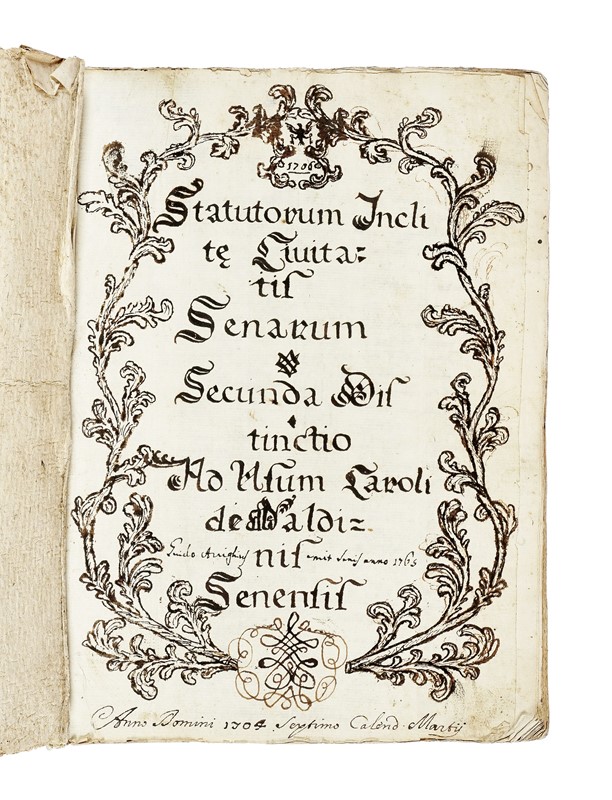 1706
Statutorum Incli
tę Ciuita=
tis
Senarum
Secunda Dis
tinctio
Ad Usum Caroli
de Baldi=
nis
Guido emit Senis anno 1765
Senensis
Anno Domini 1704 Septimo Calend. Martij